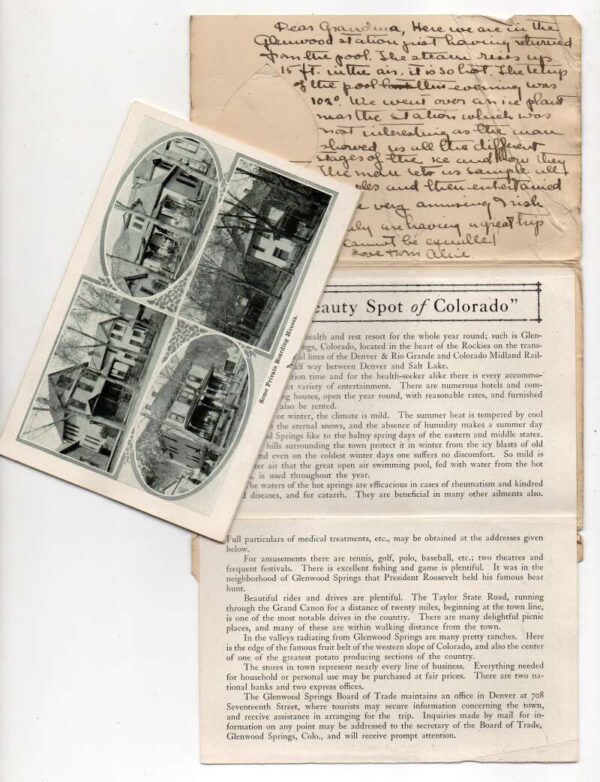 Dear Grandma, Here we are in the
Glenwood station just having returned
from the pool. The steam rises up
15 ft. in the air, it is so hot. The temp
of the pool this evening was
102°. We went over an ice plant
near the station which was
most interesting as the man
showed us all the different
stages of the ice and how they
The man lets us sample all
and then entertained
very amusing Irish
are having a great trip
cannot be equalled
Love from Alice
Some Private Boarding Houses.
eauty Spot of Colorado"
health and rest resort for the whole year round; such is Glen-
ngs, Colorado, located in the heart of the Rockies on the trans-
al lines of the Denver & Rio Grande and Colorado Midland Rail-
alf way between Denver and Salt Lake.
tion time and for the health-seeker alike there is every accommo-
at variety of entertainment. There are numerous hotels and com-
ng houses, open the year round, with reasonable rates, and furnished
also be rented.
or winter, the climate is mild. The summer heat is tempered by cool
the eternal snows, and the absence of humidity makes a summer day
d Springs like to the balmy spring days of the eastern and middle states.
hills surrounding the town protect it in winter from the icy blasts of old
nd even on the coldest winter days one suffers no discomfort. So mild is
er air that the great open air swimming pool, fed with water from the hot
, is used throughout the year.
he waters of the hot springs are efficacious in cases of rheumatism and kindred
d diseases, and for catarrh. They are beneficial in many other ailments also.
Full particulars of medical treatments, etc., may be obtained at the addresses given
below.
For amusements there are tennis, golf, polo, baseball, etc.; two theatres and
frequent festivals. There is excellent fishing and game is plentiful. It was in the
neighborhood of Glenwood Springs that President Roosevelt held his famous bear
hunt.
Beautiful rides and drives are plentiful. The Taylor State Road, running
through the Grand Canon for a distance of twenty miles, beginning at the town line,
is one of the most notable drives in the country. There are many delightful picnic
places, and many of these are within walking distance from the town.
In the valleys radiating from Glenwood Springs are many pretty ranches. Here
is the edge of the famous fruit belt of the western slope of Colorado, and also the center
of one of the greatest potato producing sections of the country.
The stores in town represent nearly every line of business. Everything needed
for household or personal use may be purchased at fair prices. There are two na-
tional banks and two express offices.
The Glenwood Springs Board of Trade maintains an office in Denver at 708
Seventeenth Street, where tourists may secure information concerning the town,
and receive assistance in arranging for the trip. Inquiries made by mail for in-
formation on any point may be addressed to the secretary of the Board of Trade,
Glenwood Springs, Colo., and will receive prompt attention.